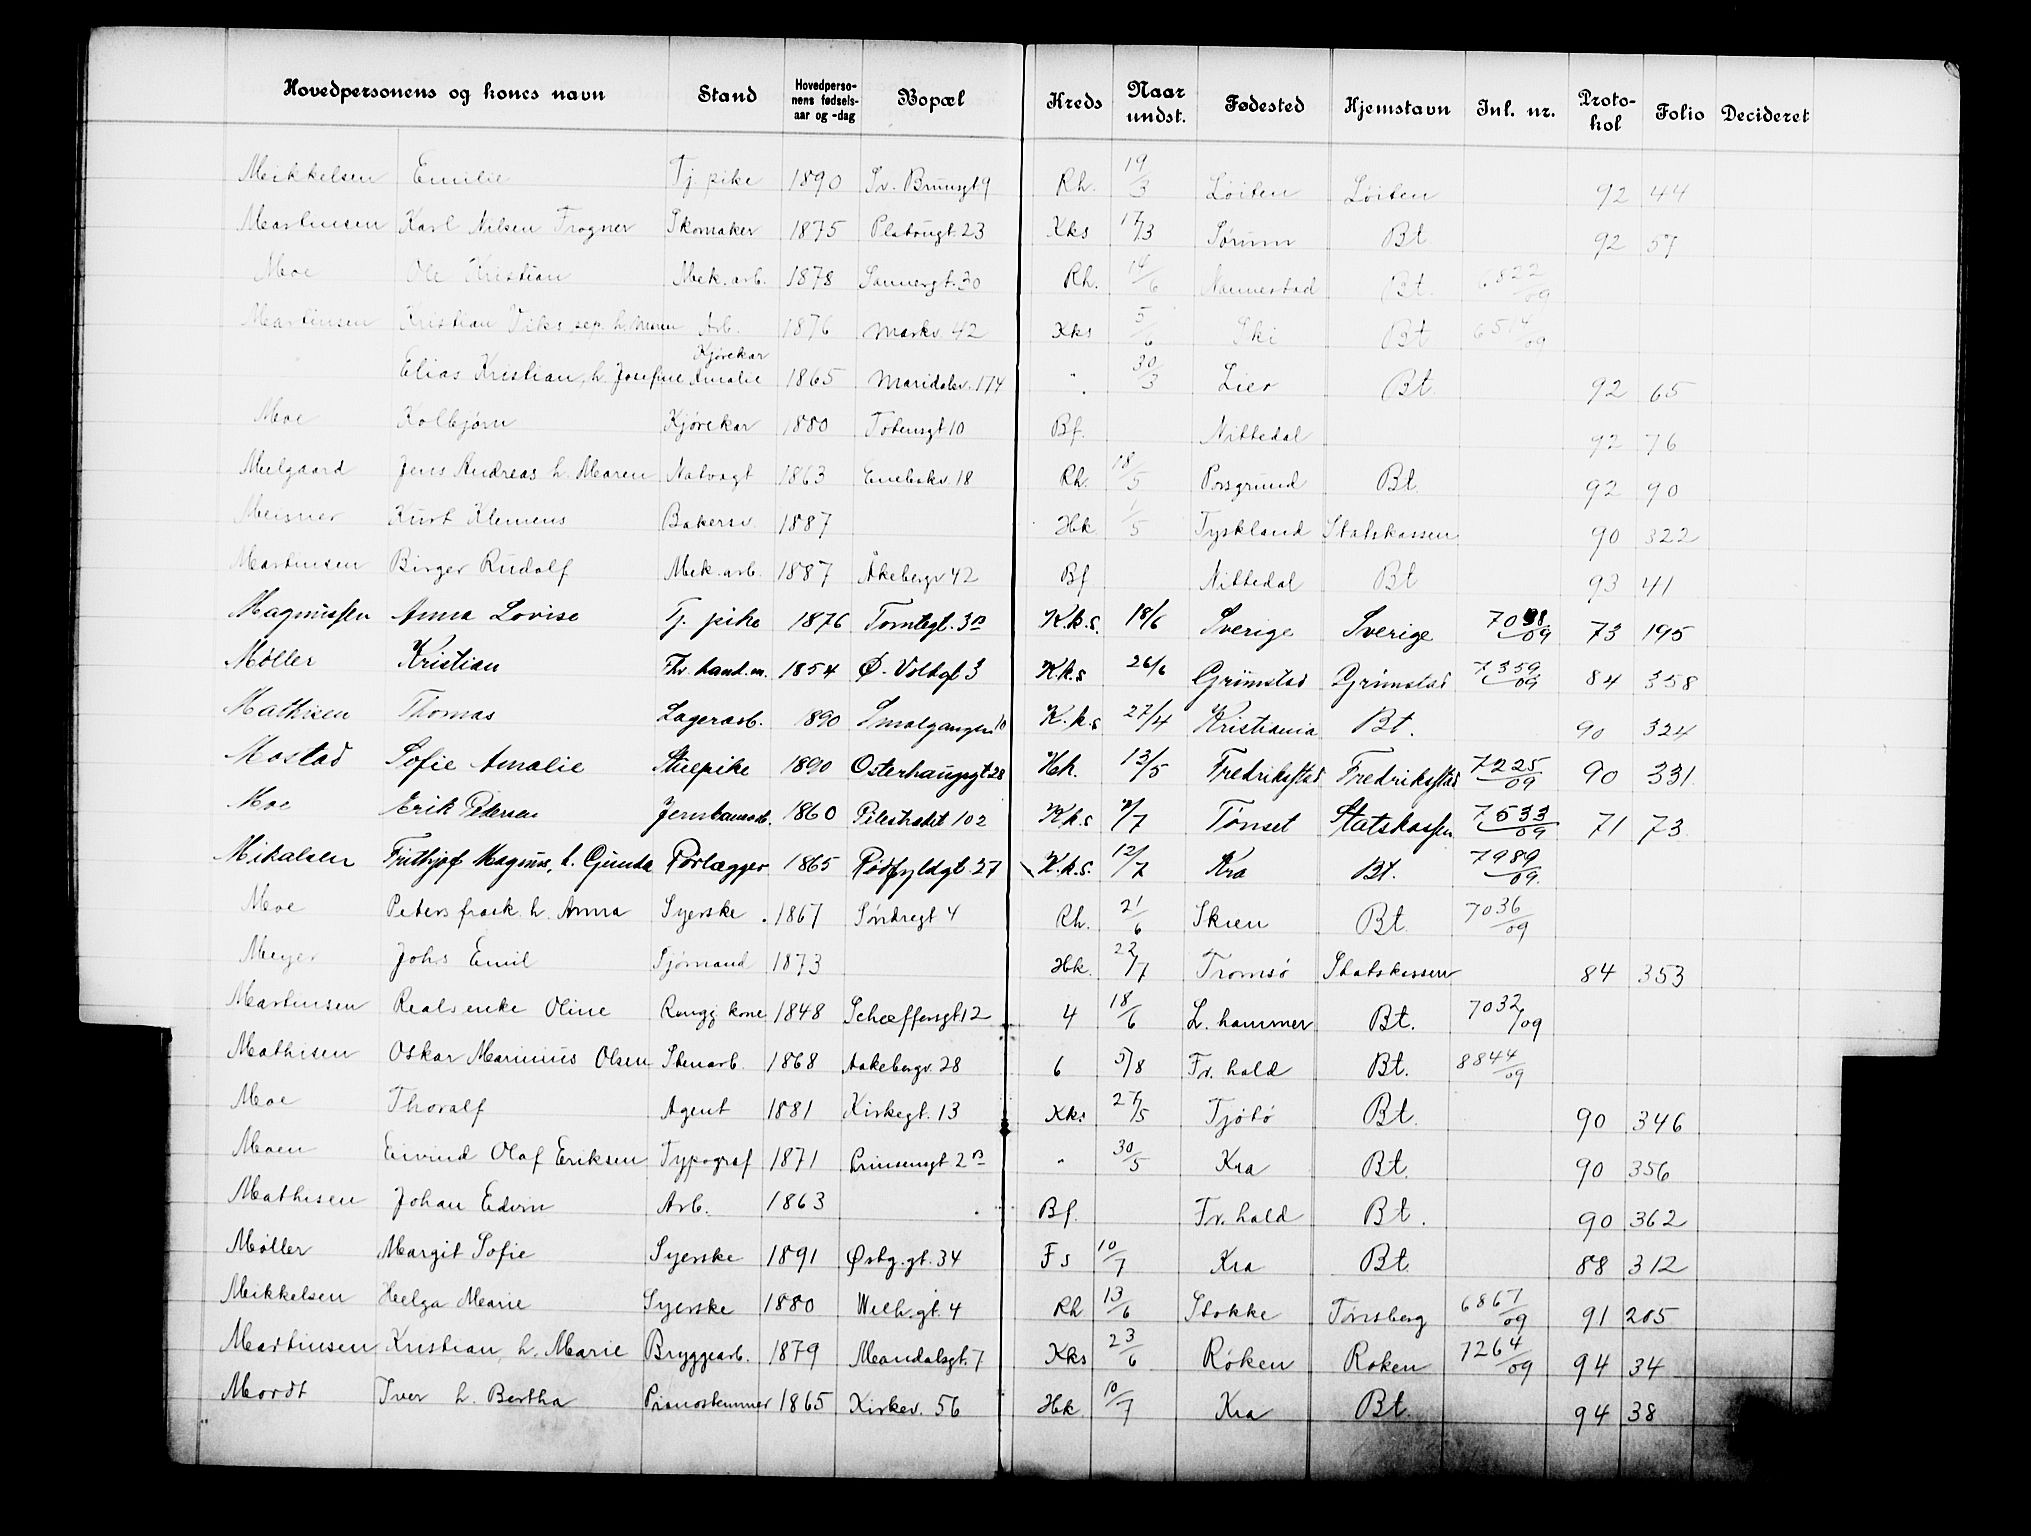 Hovedpersonens og kones navn Stand Hovedpersonens fødselsaar og -dag Bopæl Kreds Naar undst. Fødested Hjemstavn Inl. nr. Protokol Folio Decideret
Mikkelsen Emilie Tj pike 1890 Sv. Brunsgt 9 Rh. 19/3 Løiten Løiten 92 44
Martinsen Karl Nilsen Frogner Skomaker 1875 Platougt. 23 Kks 17/3 Sørum Bt 92 57
Moe Ole Kristian Mek. arb. 1878 Sannergt. 30 Rh. 14/6 Nannestad Bt. 6822/09
Martinsen Kristian Viks sep. h. Maren Arb. 1876 Markv. 42 Kks 5/6 Ski Bt 6514/09
Elias Kristian, h. Josefine Amalie Kjørekar 1865 Maridalsv. 174 " 30/3 Lier Bt. 92 65
Moe Kolbjørn Kjørekar 1880 Totensgt 10 Bf. Nittedal 92 76
Melgaard Jens Andreas h. Maren Natvagt 1863 Enebakv. 18 Rh. 18/5 Porsgrund Bt. 92 90
Meisner Kurt Klemens Bakersv. 1887 Hk 1/5 Tyskland Statskassen 90 322
Martinsen Birger Rudolf Mek. arb. 1887 Åkebergv 42 Bf Nittedal Bt 93 41
Magnussen Anna Lovise Tj. pike 1876 Tomtegt. 3 B K.k.s. 18/6 Sverige Sverige 7098/09 73 195
Møller Kristian Fhv. hand.m. 1854 Ø. Voldgt 3 K.k.s 26/6 Grimstad Grimstad 7359/09 84 358
Mathisen Thomas Lagerarb. 1890 Smalgangen 10 K.k.s 27/4 Kristiania Bt. 90 324
Mostad Sofie Amalie Stuepike 1890 Osterhausgt 28 Hk. 13/5 Fredriksstad Fredriksstad 7225/09 90 331
Moe Erik Pedersen Jernbanearb. 1860 Pilestredet 102 K.k.s 2/7 Tønset Statskassen 7533/09 71 73
Mikalsen Frithjof Magnus, h. Gunda Rørlægger 1865 Rødfyldgt. 27 K.k.s. 12/7 Kra Bt. 7989/09
Moe Peters frask. h. Anna Syerske 1867 Søndregt 4 Rh. 21/6 Skien Bt. 7036/09
Meyer Johs Emil Sjømand 1873 Hk. 22/7 Tromsø Statskassen 84 353
Martinsen Reals enke Oline Rengj kone 1848 Schæffersgt 12 4 18/6 L. hammer Bt. 7032/09
Mathisen Oskar Marinius Olsen Stenarb. 1868 Aakebergv. 28 6 5/8 Fr. hald Bt. 8844/09
Moe Thoralf Agent 1881 Kirkegt. 13 Kks 27/5 Tjötö Bt. 90 346
Moen Eivind Olaf Eriksen Typograf 1871 Prinsensgt 2 B " 30/5 Kra Bt. 90 356
Mathisen Johan Edvin Arb. 1863 Bf. Fr. hald Bt. 90 362
Møller Margit Sofie Syerske 1891 Østg. gt. 34 Fs 10/7 Kra Bt. 88 312
Mikkelsen Helga Marie Syerske 1880 Wilh. gt. 4 Rh 13/6 Stokke Tønsberg 6867/09 91 205
Martinsen Kristian, h. Marie Bryggearb. 1879 Mandalsgt. 7 Kks 23/6 Røken Røken 7264/09 94 34
Mordt Iver h. Bertha Pianostemmer 1865 Kirkev. 56 Hk. 10/7 Kra Bt. 94 38